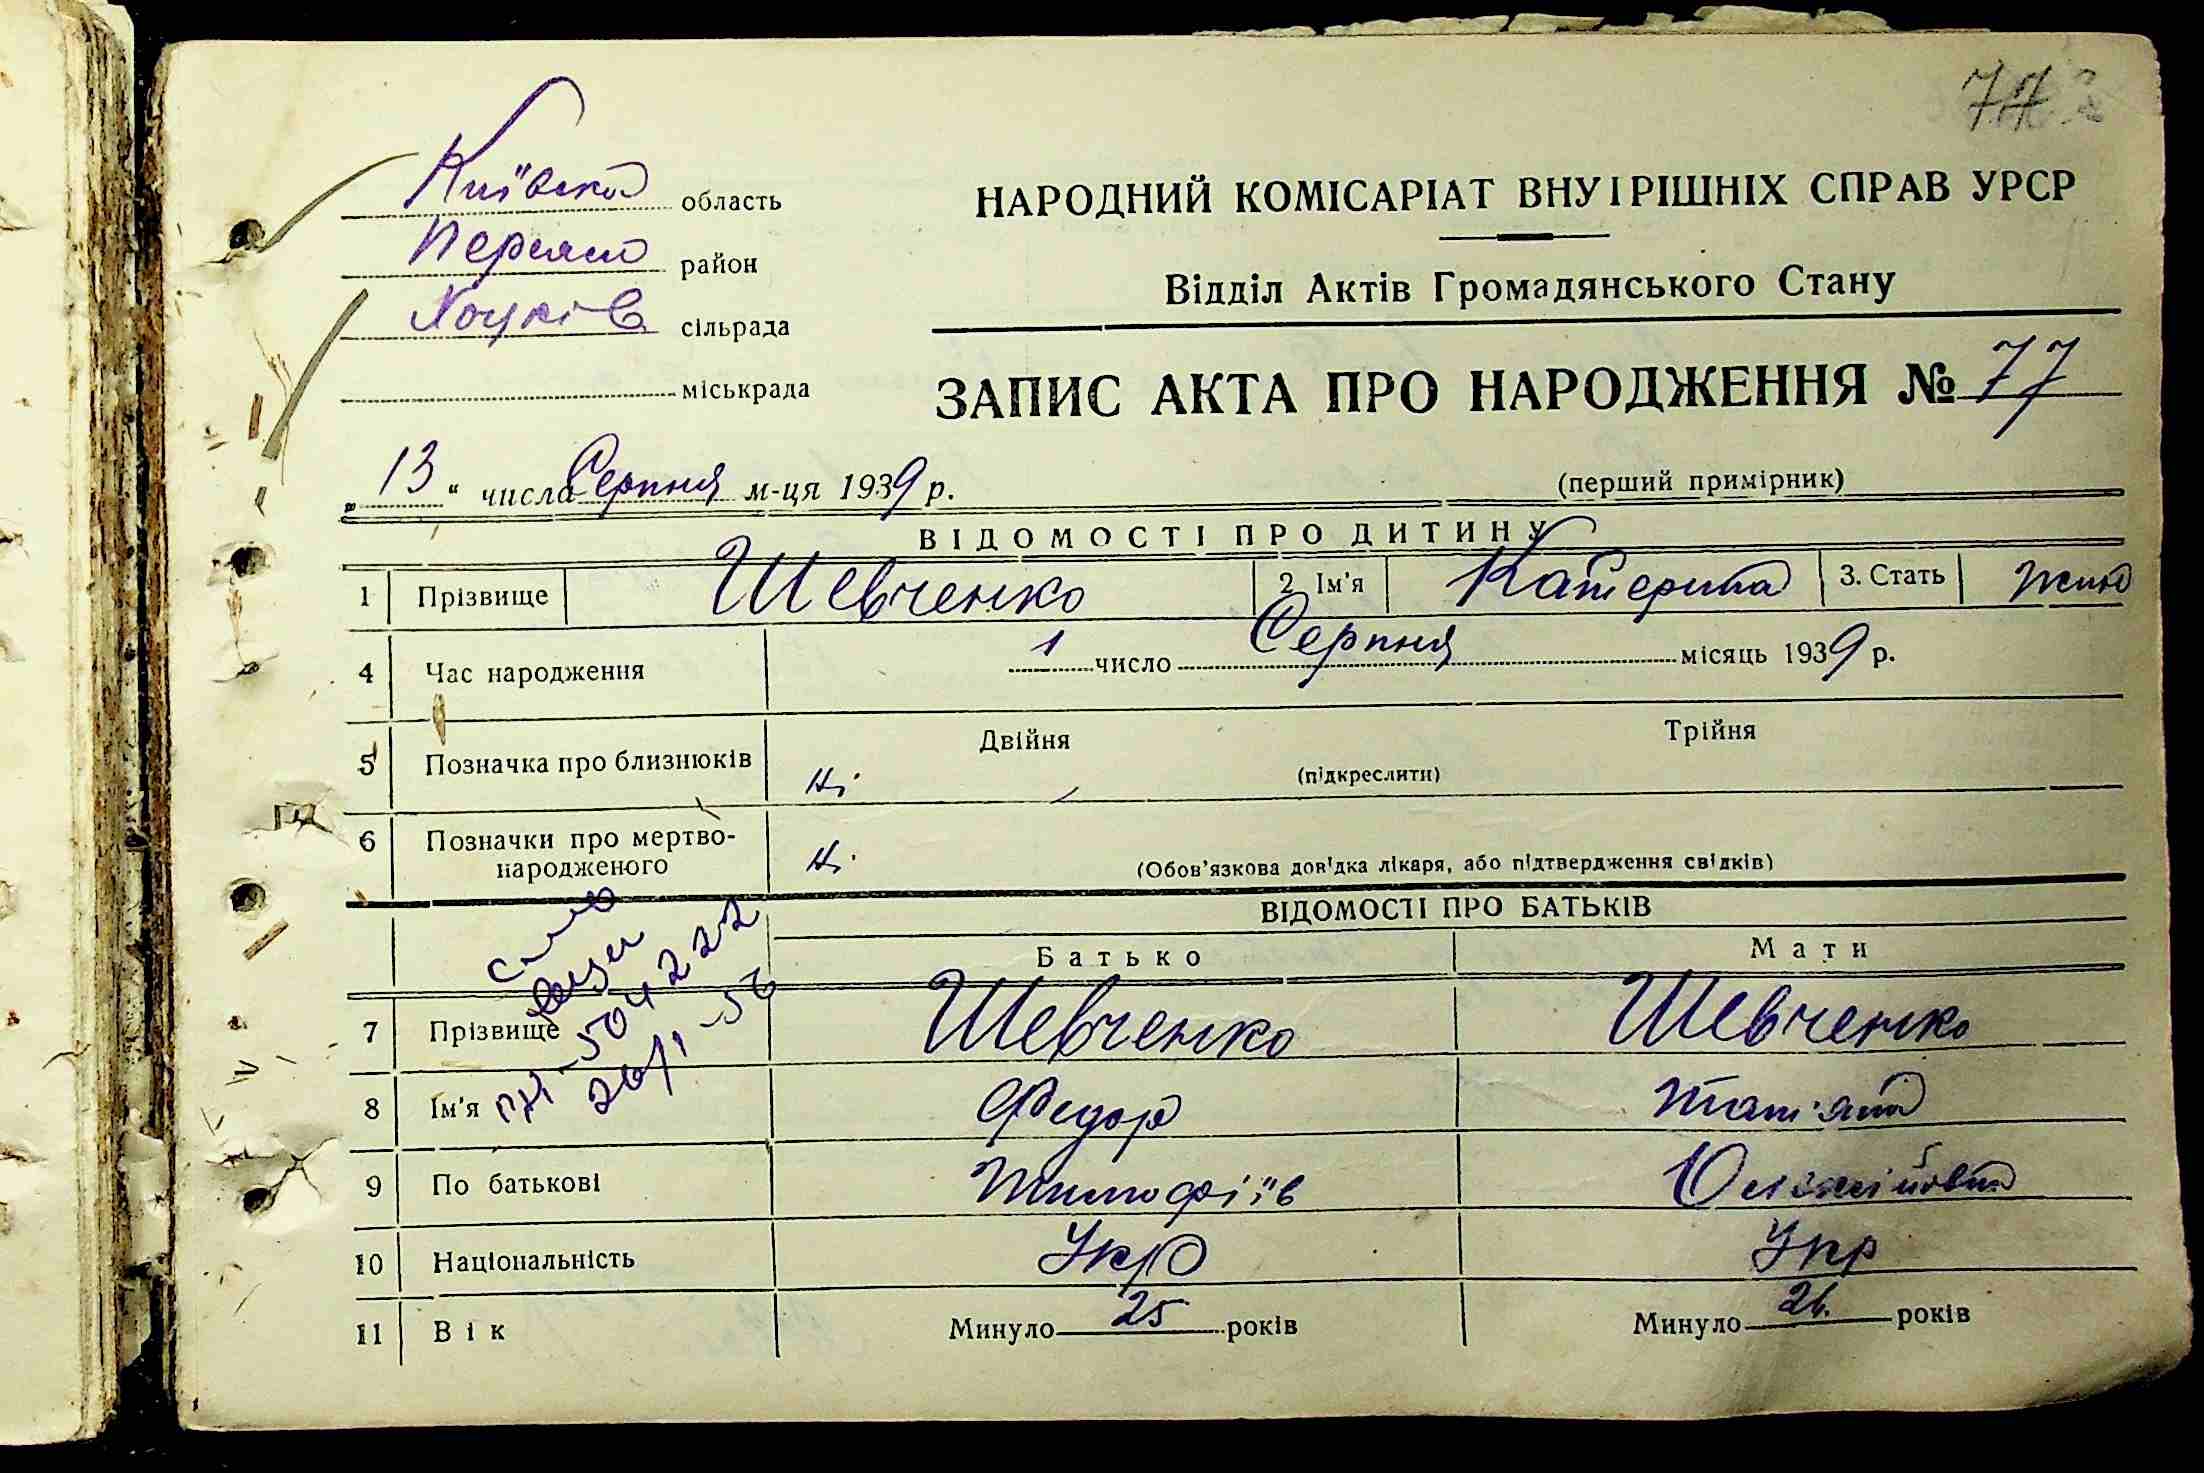 77
Київська область
НАРОДНИЙ КОМІСАРІАТ ВНУТРІШНІХ СПРАВ УРСР
Переясл район
Відділ Актів Громадянського Стану
Хоцків сільрада
міськрада
ЗАПИС АКТА ПРО НАРОДЖЕННЯ № 77
„13“ числа Серпня м-ця 1939 р.
(перший примірник)
ВІДОМОСТІ ПРО ДИТИНУ
1 Прізвище Шевченко 2. Ім'я Катерина 3. Стать жін
4 Час народження 1 число Серпня місяць 1939 р.
5 Позначка про близнюків Ні Двійня (підкреслити) Трійня
6 Позначки про мертво-
народженого Ні. (Обов'язкова довідка лікаря, або підтвердження свідків)
ВІДОМОСТІ ПРО БАТЬКІВ
Батько Мати
7 Прізвище Шевченко Шевченко
8 Ім'я Федор Тат'яна
9 По батькові Тимофіїв Олексійовна
10 Національність Укр Укр
11 Вік Минуло 25 років Минуло 26. років
504222
26/1-56